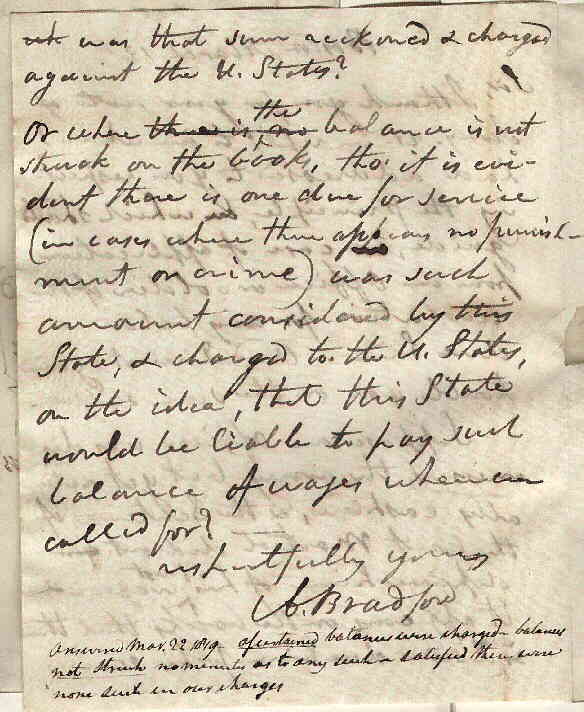 was that sum reckoned & charged
against the U. States?
Or where there is no the balance is not
struck on the book, tho. it is evi-
dent there is one due for service
(in cases where there appears no punish-
ment or crime) was such
amount considered by this
State, & charged to the U. States,
on the idea, that this State
would be liable to pay such
balance of wages whenever
called for?
respectfully yours
A. Bradford
Answered Mar. 22 1819 - ascertained balances were charged - balances
not struck no minutes as to any such & satisfied there were
none such in our charges